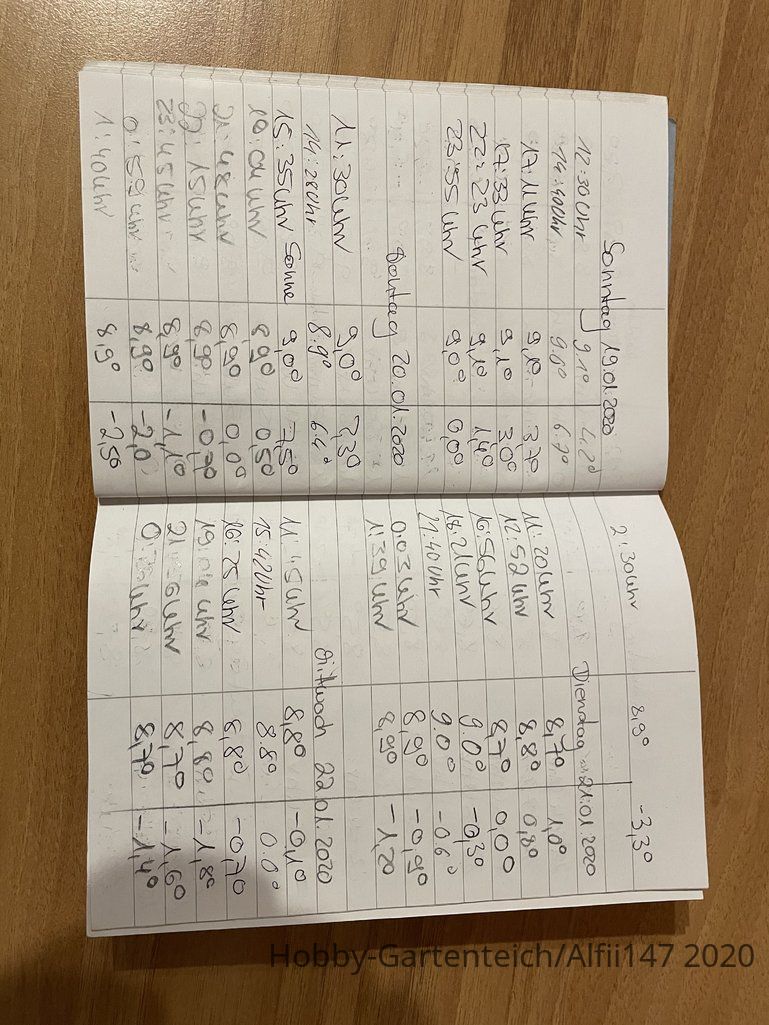 Sonntag 19.01.2020
12:30 Uhr 9.1° 4.2°
14:40 Uhr 9.0° 6.7°
17:11 Uhr 9,1° 3.7°
17:33 Uhr 9,1° 3,0°
22:23 Uhr 9,1° 1,4°
23:55 Uhr 9,0° 0,0°
Montag 20.01.2020
11:30 Uhr 9,0° 7,3°
14:28 Uhr 8.9° 6.4°
15:35 Uhr Sonne 9,0° 7,5°
19:04 Uhr 8,9° 0,5°
21:48 Uhr 8,9° 0,0°
22:15 Uhr 8,9° -0,7°
23:45 Uhr 8,9° -1,1°
0:59 Uhr 8,9° -2,0
1:40 Uhr 8,9° -2,5°
2:30 Uhr 8,9° -3,3°
Dienstag 21.01.2020
11:20 Uhr 8,7° 1,0°
12:52 Uhr 8,8° 0,8°
16:56 Uhr 8,7° 0,0°
18:21 Uhr 9.0° -0,3°
21:40 Uhr 9.0° -0.6°
0:03 Uhr 8,9° -0,9°
1:39 Uhr 8,9° -1,2°
Mittwoch 22.01.2020
11:45 Uhr 8,8° -0,1°
15:42 Uhr 8.8° 0.0°
16:25 Uhr 8,8° -0,7°
19:04 Uhr 8,8° -1,8°
21:56 Uhr 8,7° -1,6°
Uhr 8,7° -1,4°
Hobby-Gartenteich/Alfii147 2020